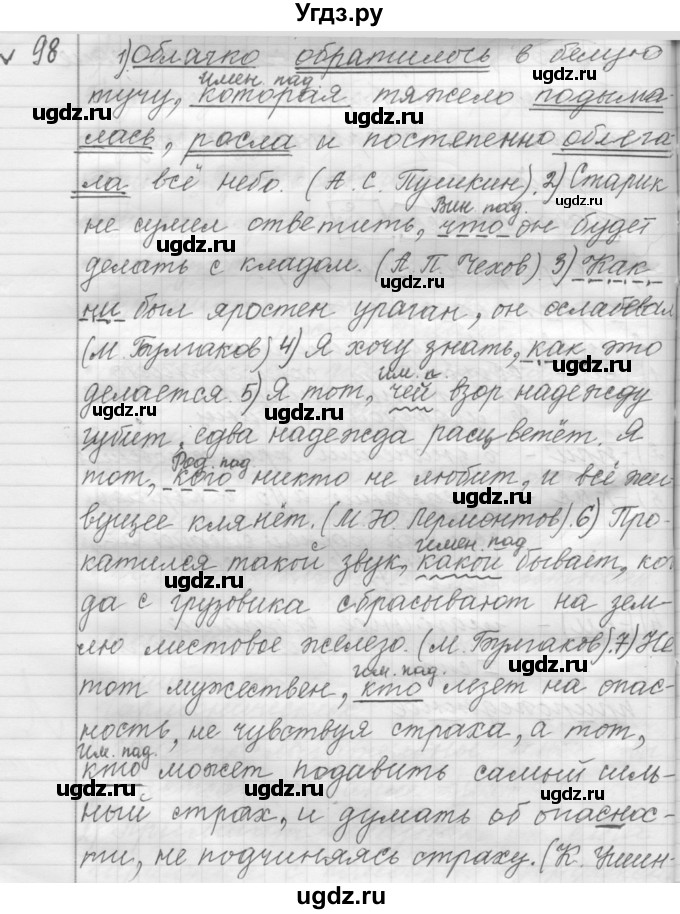 Угдз.ру
√ 98 1) Облачко обратилось в белую
имен. пад.
тучу, которая тяжело подыма-
лась, росла и постепенно облега-
ла всё небо. (А. С. Пушкин). 2) Старик
Вин. пад.
не сумел ответить, что он будет
делать с кладом. (А. П. Чехов). 3) Как
ни был яростен ураган, он ослабевал
(М. Булгаков) 4) Я хочу знать, как это
им. п.
делается. 5) Я тот, чей взор надежду
губит, едва надежда расцветёт. Я
Род. пад
тот, кого никто не любит, и всё жи-
вущее клянёт. (М. Ю. Лермонтов). 6) Про-
имен. пад
катился такой звук, какой бывает, ко
да с грузовика сбрасывают на зем-
лю листовое железо. (М. Булгаков). 7) Не
им. пад.
тот мужествен, кто лезет на опас-
ность, не чувствуя страха, а тот,
Им. пад.
кто может подавить самый силь-
ный страх, и думать об опаснос-
ти, не подчиняясь страху. (К. Ушин-
ugdz.ru
ugdz.ru
ugdz.ru
ugdz.ru
ugdz.ru
ugdz.ru
ugdz.ru
ugdz.ru
ugdz.ru
ugdz.ru
ugdz.ru
ugdz.ru
ugdz.ru
ugdz.ru
ugdz.ru
ugdz.ru
ugdz.ru
ugdz.ru
ugdz.ru
ugdz.ru
ugdz.ru
ugdz.ru
ugdz.ru
Угдз.ру